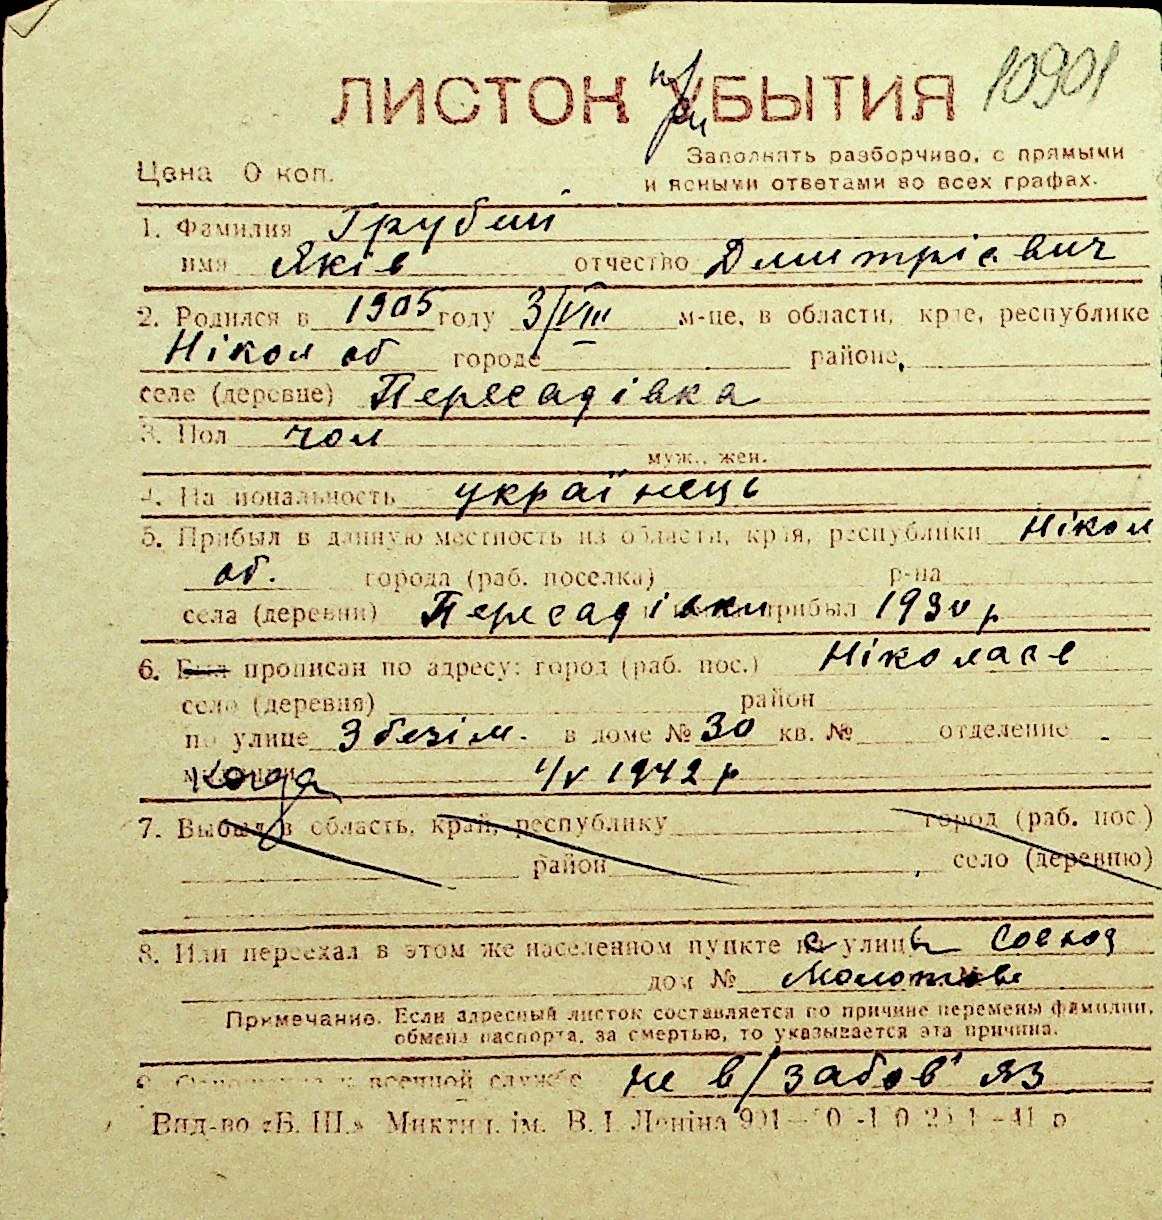 10901
ЛИСТОН при УБЫТИЯ
Цена 0 коп.
Заполнять разборчиво, с прямыми
и ясными ответами во всех графах.
1. Фамилия Грубий
имя Яків отчество Дмитрієвич
2. Родился в 1905 году 3/VIII м-це, в области, крае, республике
Нікол об городе районе,
селе (деревне) Пересадівка
3. Пол чол
муж., жен.
4. Национальность українець
5. Прибыл в данную местность из области, края, республики Нікол
об. города (раб. поселка) р-на
села (деревни) Пересадівки прибыл 1930 р
6. Был прописан по адресу: город (раб. пос.) Ніколаєв
село (деревня) район
по улице 3 безім. в доме № 30 кв. № отделение
когда 1/V 1942 р
7. Выбыл в область, край, республику город (раб. пос.)
район село (деревню)
8. Или переехал в этом же населенном пункте с улицы Совхоз
дом № Молотова
Примечание. Если адресный листок составляется по причине перемены фамилии,
обмена паспорта, за смертью, то указывается эта причина.
9. Отношение к военной службе не в/забов'яз
Вид-во «Б. Ш.» Микт ім. В. І. Леніна